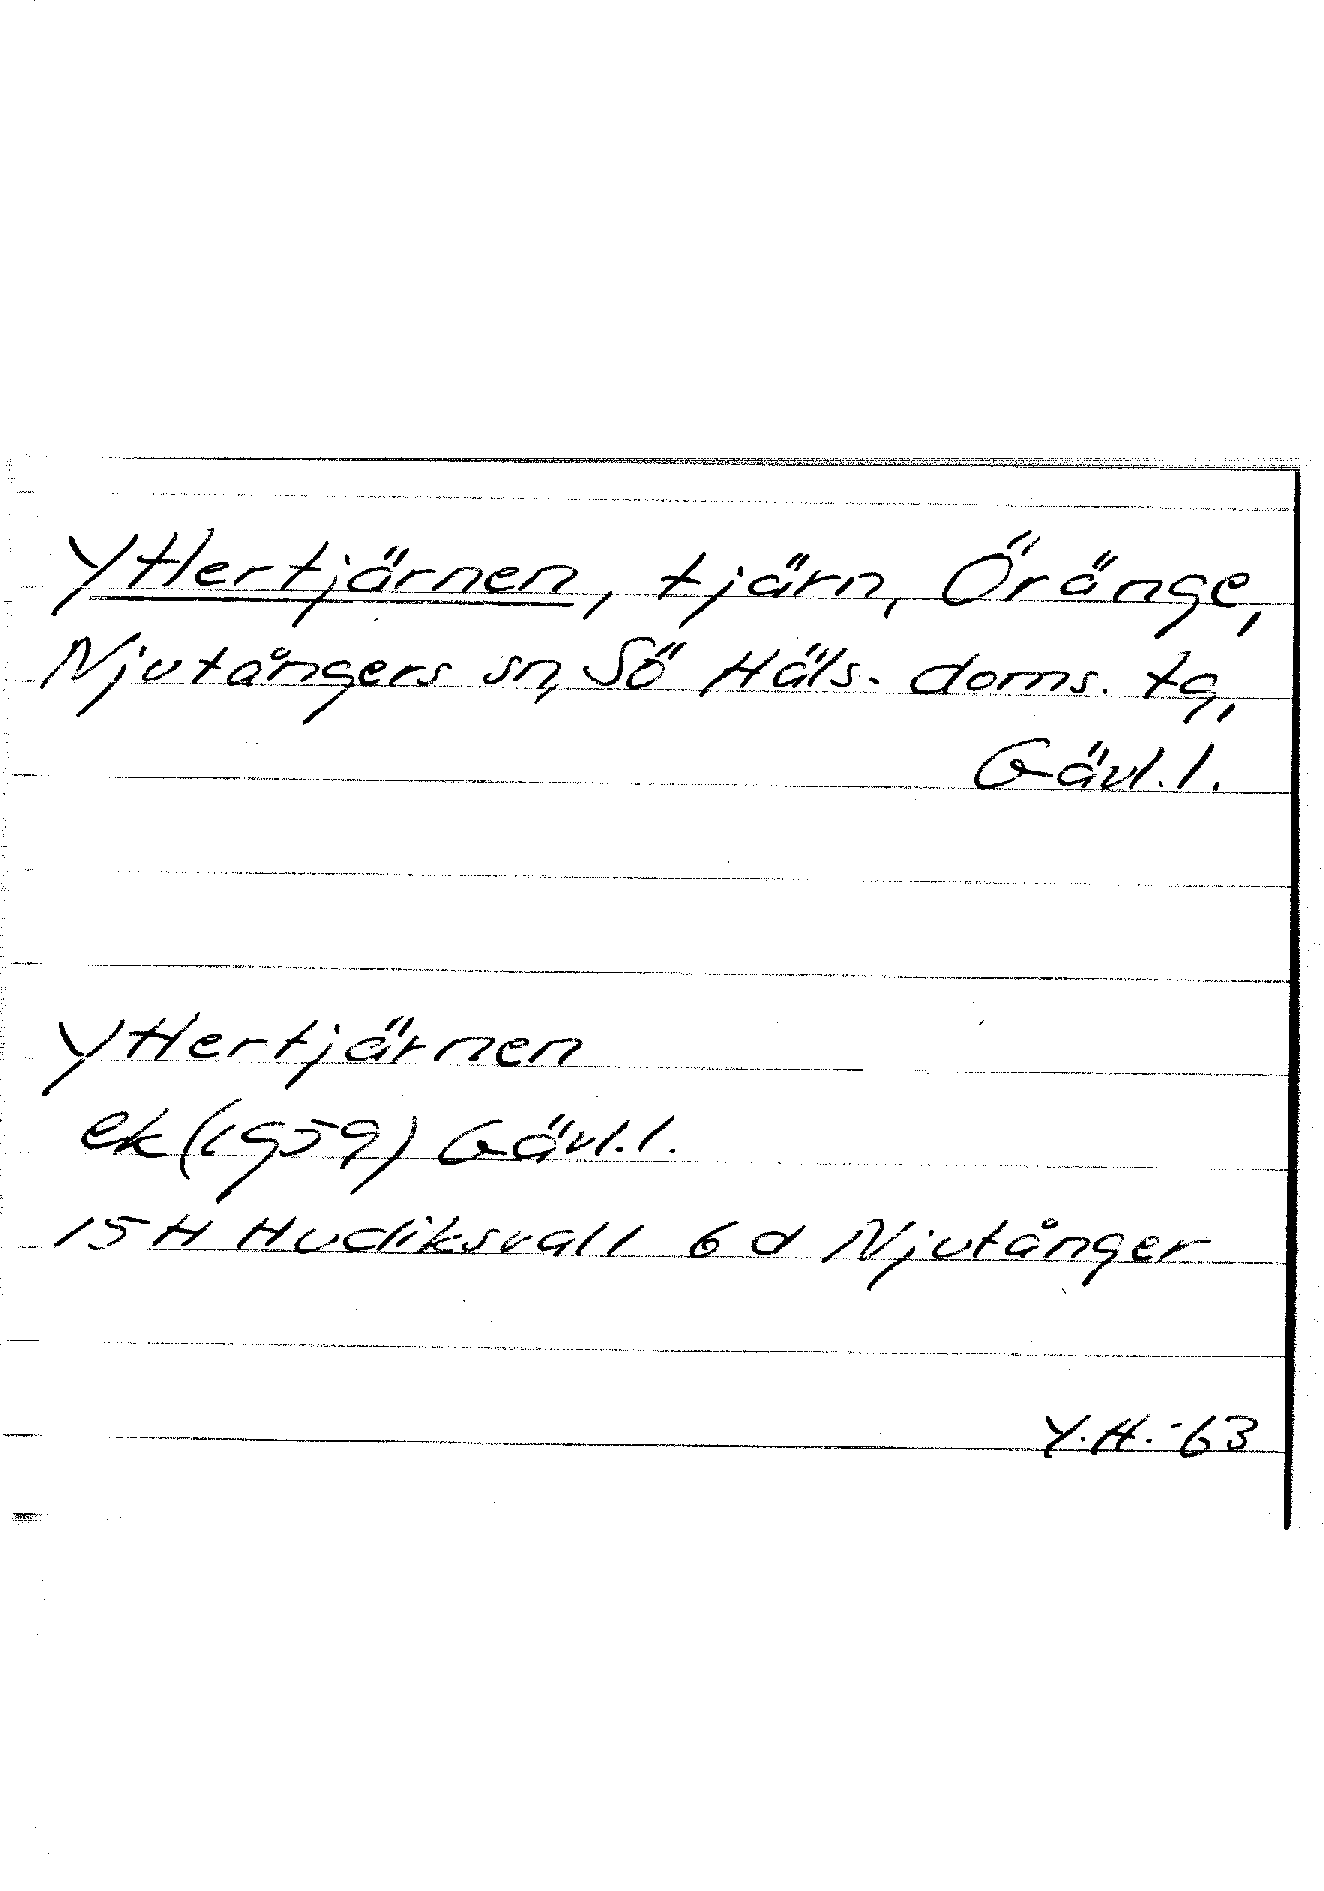 Yttertjärnen, tjärn, Öränge,
Njutångers sn, Sö Häls. doms. tg,
Gävl. l.
Yttertjärnen
ek (1959) Gävl. l.
15 H Hudiksvall 6 d Njutånger
Y.H. -63